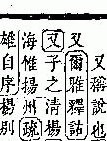 又稱說也
又爾雅釋詁
又子之清揚
海惟揚州疏
雄自序楊別